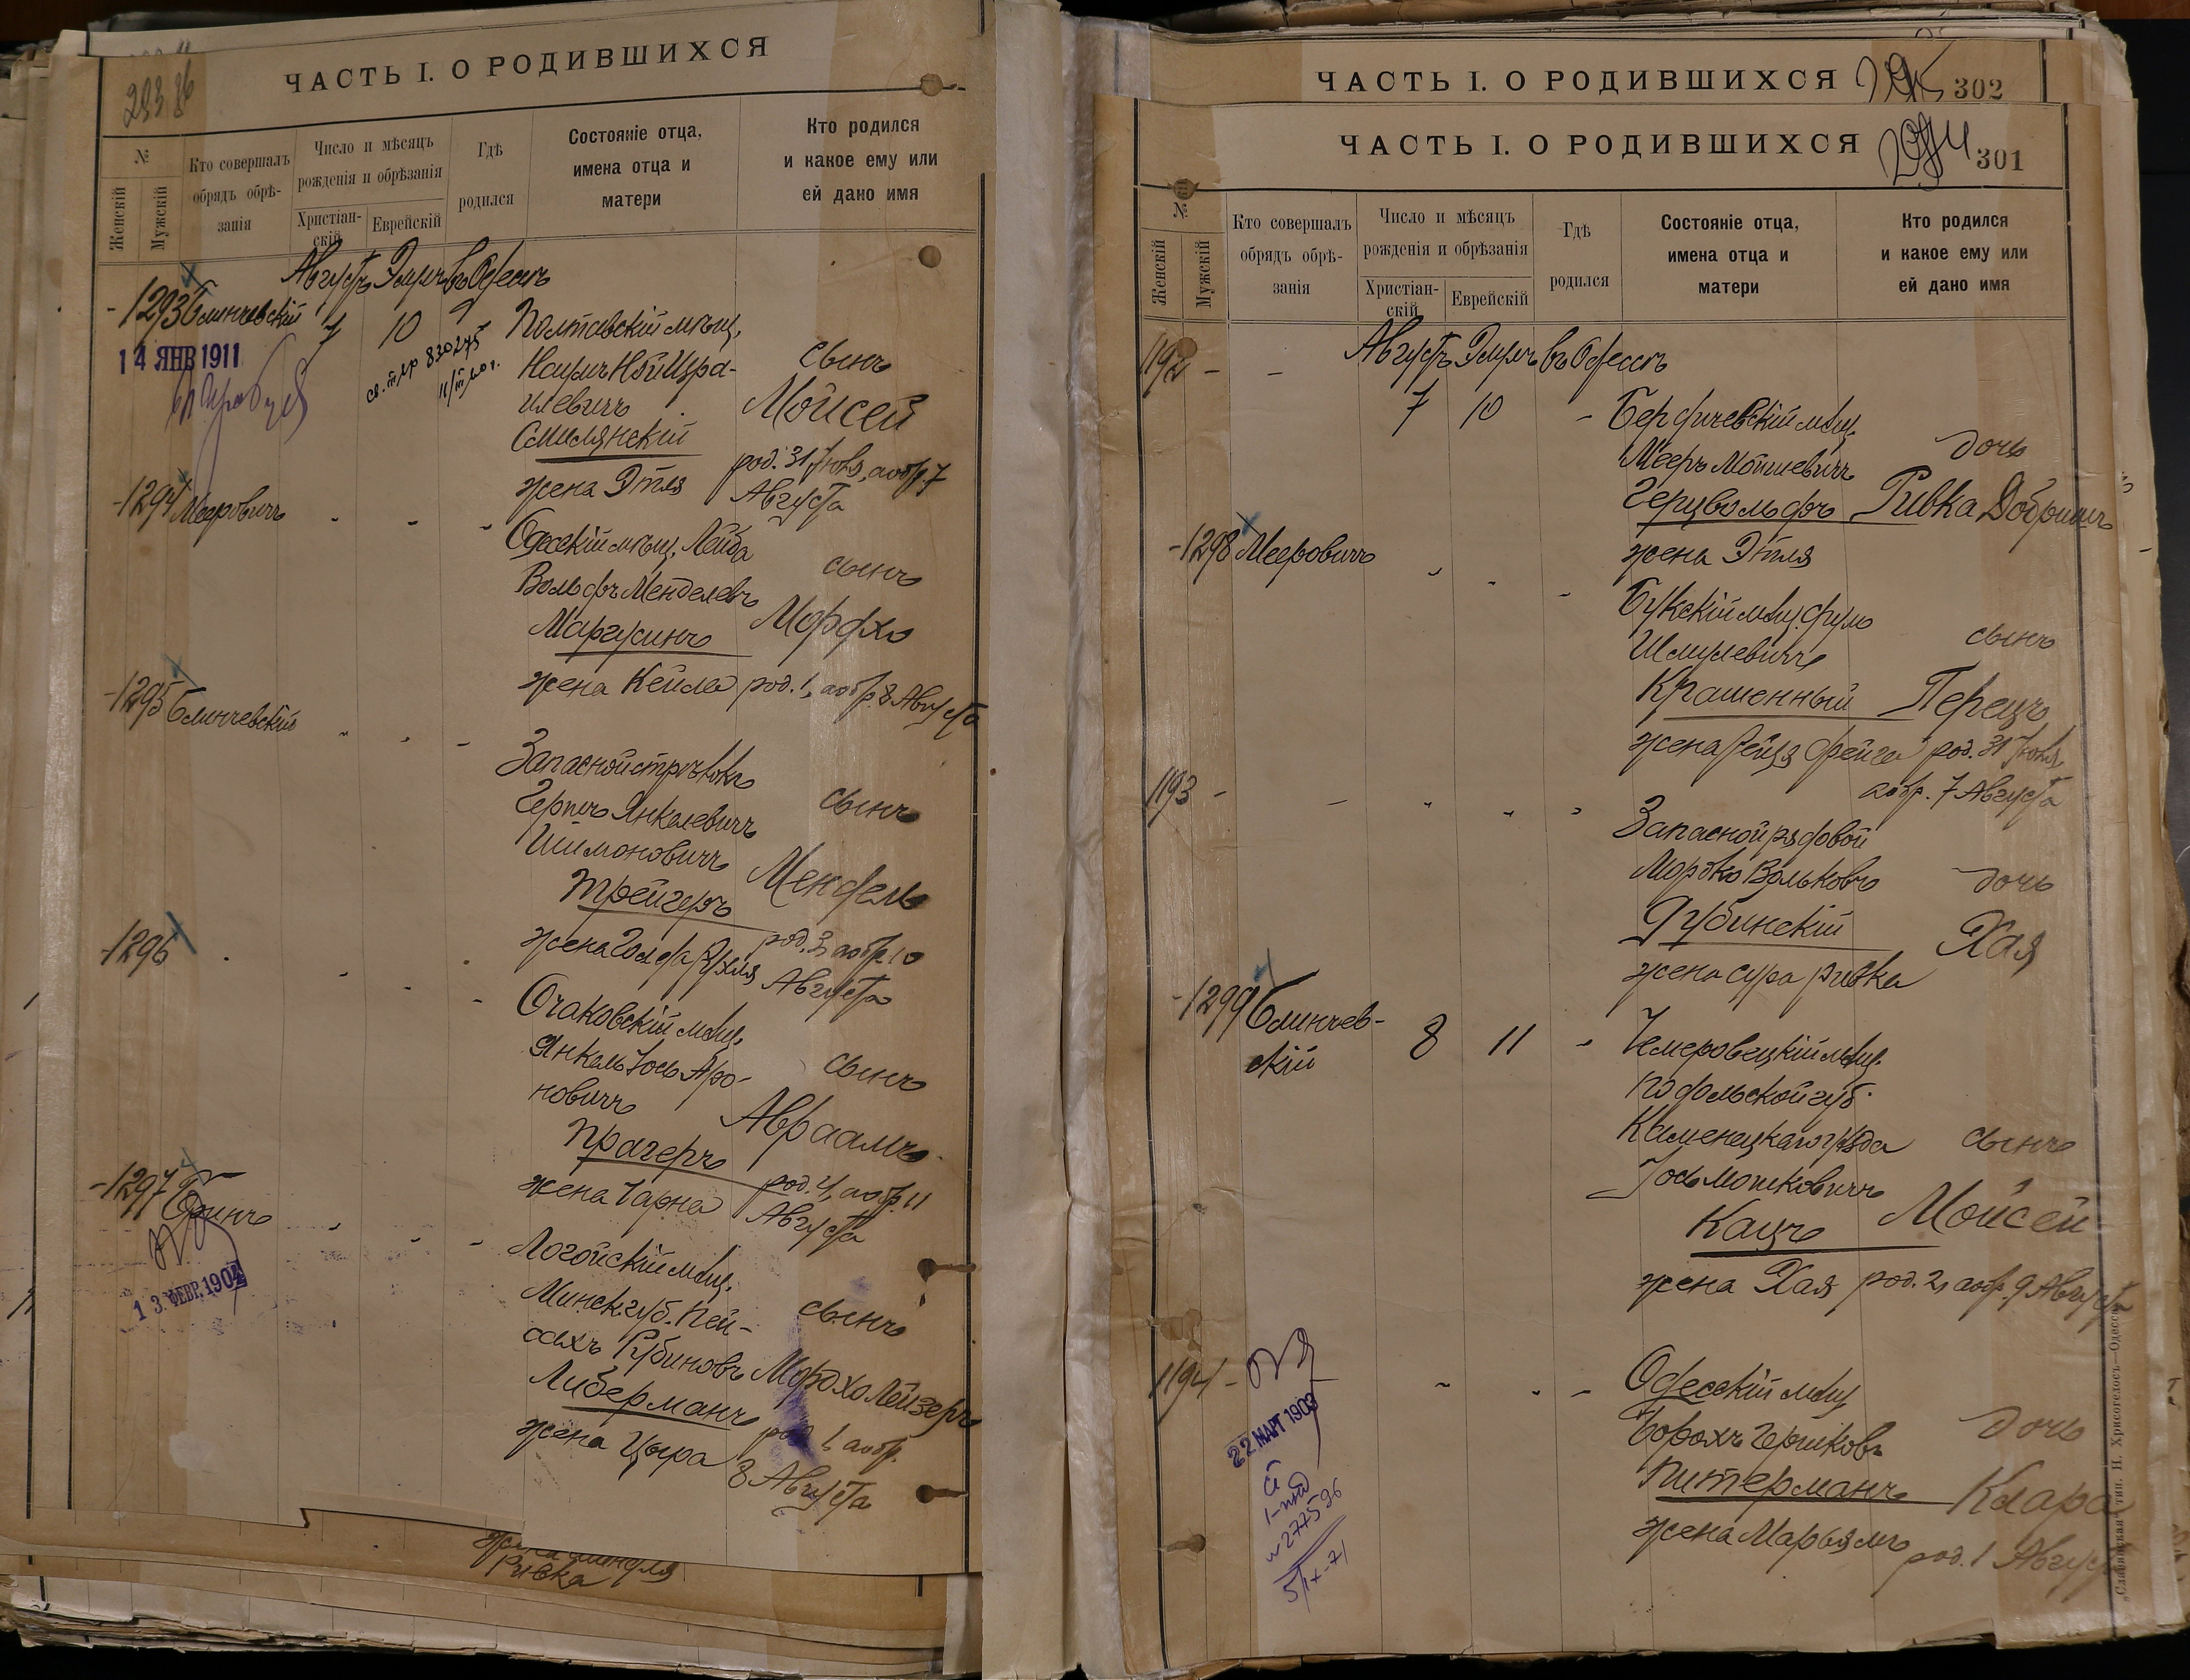 293
ЧАСТЬ I. О РОДИВШИХСЯ
№
Женскій
Мужскій
Кто совершалъ
обрядъ обрѣ-
занія
Число и мѣсяцъ
рожденія и обрѣзанія
Христіан-
скій
Еврейскій
Гдѣ
родился
Состояніе отца,
имена отца и
матери
Кто родился
и какое ему или
ей дано имя
Августъ Элулъ въ Одессѣ
- 1293 Блинчевскій 7 10
14 ЯНВ 1911
Полтавскій мѣщ.
Наумъ Нойизра-
илевичъ
Смилянскій
жена Этля
сынъ
Мойсей
род. 31 Юля, а обр. 7
Августа
- 1294 Мееровичъ
Одесскій мѣщ. Лейба
Вольфъ Менделевъ
Маргулинъ
жена Кейла
сынъ
Мордхо
род. 1, а обр. 8 Августа
- 1295 Блинчевскій
Запасной стрѣлокъ
Гершъ Янкелевичъ
Шимоновичъ
Трейгеръ
жена Голда Рухля
сынъ
Мендель
род. 3, а обр. 10
Августа
- 1296
Очаковскій мѣщ.
Янкель Іось Аро-
новичъ
Прагеръ
жена Чарна
сынъ
Авраамъ
род. 4, а обр. 11
Августа
- 1297
13 ФЕВР. 1904
Логойскій мѣщ.
Минск. губ. Пей-
сахъ Рубиновъ
Либерманъ
жена Цыра
сынъ
Мордхо Лейзеръ
род. 1, а обр.
8 Августа
Ривка
ЧАСТЬ I. О РОДИВШИХСЯ
302
ЧАСТЬ I. О РОДИВШИХСЯ
301
№
Женскій
Мужскій
Кто совершалъ
обрядъ обрѣ-
занія
Число и мѣсяцъ
рожденія и обрѣзанія
Христіан-
скій
Еврейскій
Гдѣ
родился
Состояніе отца,
имена отца и
матери
Кто родился
и какое ему или
ей дано имя
Августъ Элулъ въ Одессѣ
1192 - - 7 10 -
Бердичевскій мѣщ.
Мееръ Мошевичъ
Герцвольфъ
жена Этля
дочь
Ривка Добришъ
- 1298 Мееровичъ
Букскій мѣщ.
Шмулевичъ
Крашенный
жена Рейзя Фейга
сынъ
Перецъ
род. 31 Юля,
а обр. 7 Августа
1193 - -
Запасной рядовой
Мордко Вольковъ
Дубинскій
жена Сура Ривка
дочь
Хая
- 1299 Блинчев-
скій
8 11
Чемеровецкій мѣщ.
Подольской губ.
Каменецкаго уѣзда
Іось Мошковичъ
Кацъ
жена Хая
сынъ
Мойсей
род. 2, а обр. 9 Августа
1194 -
22 МАРТ 1903
Одесскій мѣщ
Борохъ Гершковъ
Питерманъ
жена Марьямъ
дочь
Клара
род. 1 Август
„Славянская“ тип. Н. Хрисогелосъ—Одесса